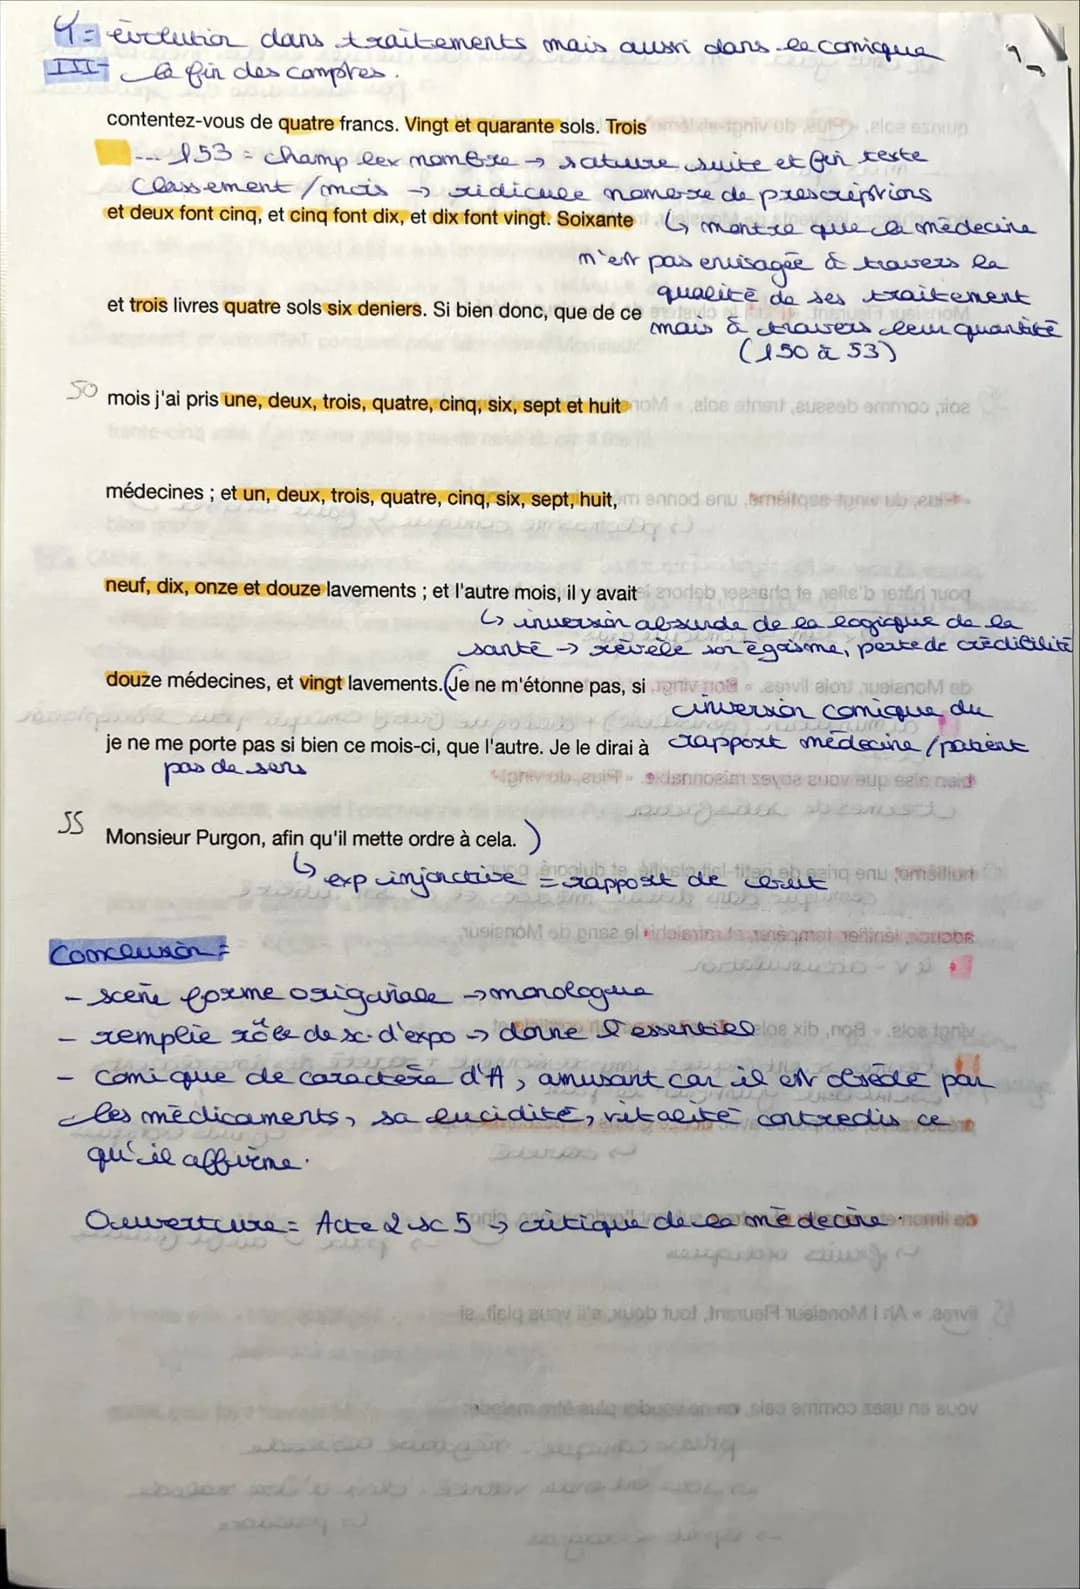 T = évolution dans traitements mais aussi dans le comique
III - la fin des comptes.
contentez-vous de quatre francs. Vingt et quarante sols. Trois
... l53 = champ lex nombre → sature suite et fin texte
Classement / mois → ridicule nombre de prescriptions
et deux font cinq, et cinq font dix, et dix font vingt. Soixante
↳ montre que la médecine
n'est pas envisagée à travers la
qualité de ses traitement
et trois livres quatre sols six deniers. Si bien donc, que de ce
mais à travers leur quantité
(l50 à 53)
50 mois j'ai pris une, deux, trois, quatre, cinq, six, sept et huit
médecines ; et un, deux, trois, quatre, cinq, six, sept, huit,
neuf, dix, onze et douze lavements ; et l'autre mois, il y avait
↳ inversion absurde de la logique de la
santé → révèle son égoïsme, perte de crédibilité
douze médecines, et vingt lavements. (Je ne m'étonne pas, si
inversion comique du
je ne me porte pas si bien ce mois-ci, que l'autre. Je le dirai à
rapport médecine / patient
pas de sens
55 Monsieur Purgon, afin qu'il mette ordre à cela. )
↳ exp injonctive = rapport de
Conclusion =
- scène forme originale → monologue
- remplie rôle de sc. d'expo → donne l'essentiel
- comique de caractère d'A, amusant car il est obsédé par
les médicaments, sa lucidité, vitalité contredis ce
qu'il affirme.
Ouverture = Acte 2 sc 5 → critique de la médecine.